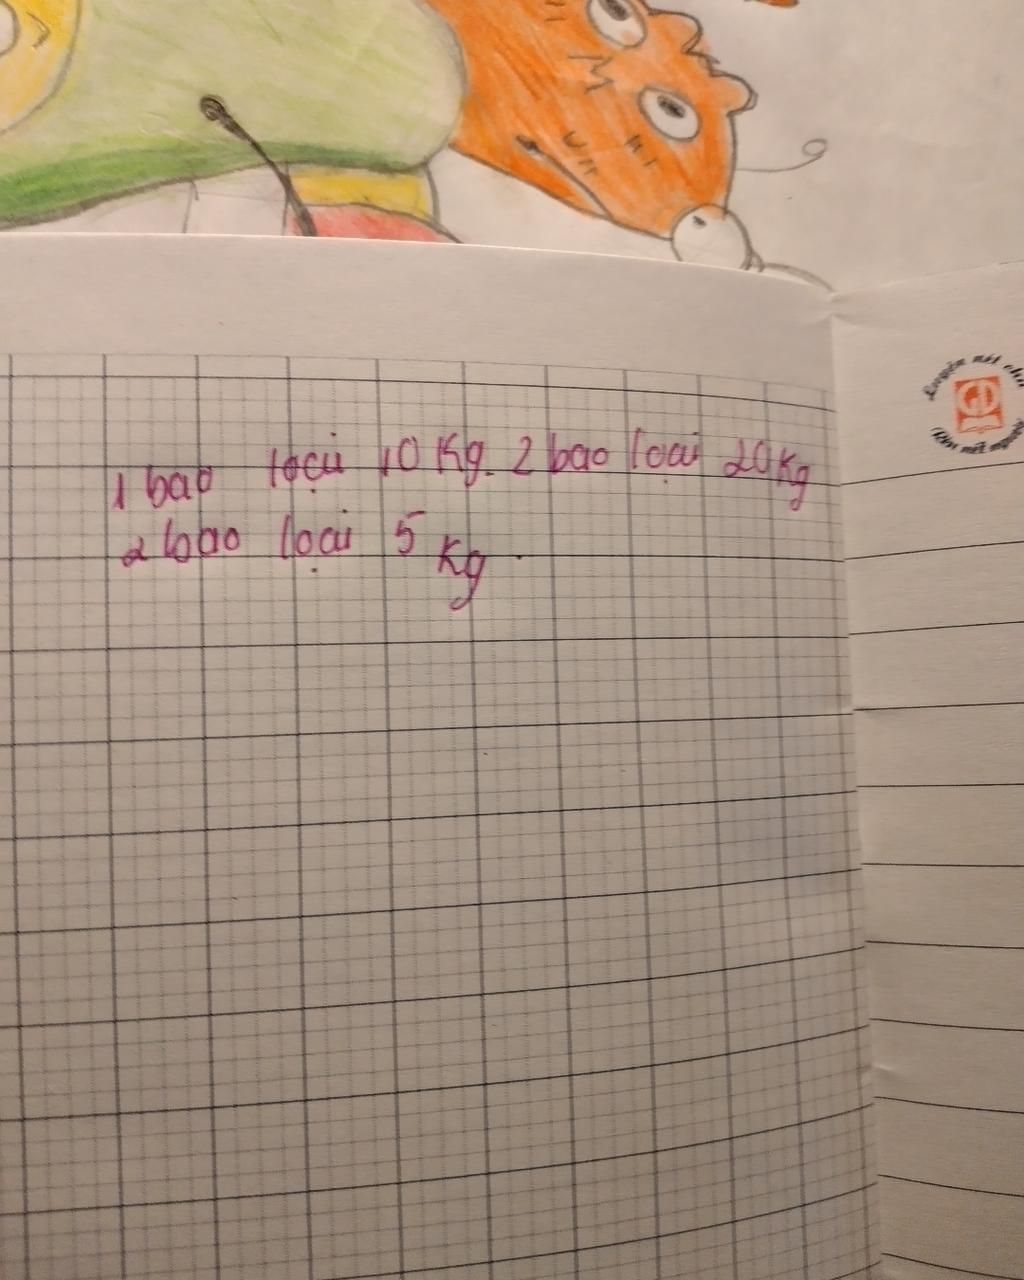 1 bao loại 10 Kg. 2 bao loại 20 Kg
2 bao loại 5 Kg.
Luyện nét chữ
GD
Rèn nết người